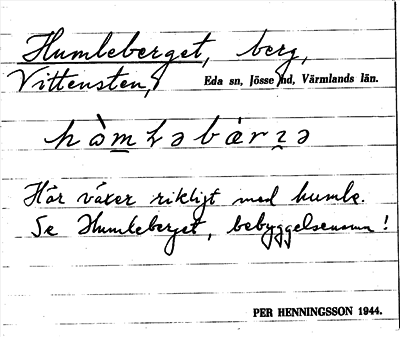 Humleberget, berg,
Vittensten, Eda sn, Jösse hd, Värmlands län.
Här växer rikligt med humle.
Se Humleberget, bebyggelsenamn!
PER HENNINGSSON 1944.